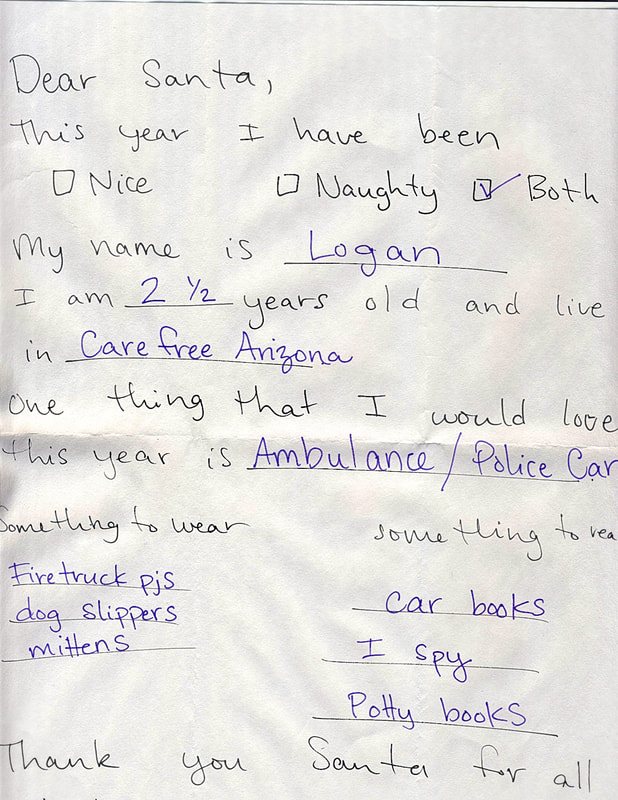 Dear Santa,
This year I have been
Nice Naughty Both
My name is Logan
I am 2 ½ years old and live
in Carefree Arizona
One thing that I would love
this year is Ambulance / Police Car
Something to wear something to rea
Firetruck pjs
dog slippers
mittens
Car books
I spy
Potty books
Thank you Santa for all